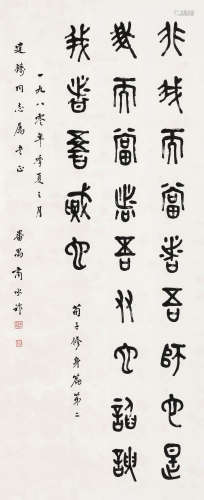 非我而當者吾師也是
我而當者吾友也諂諛
我者吾賊也
荀子修身篇第二
一九八零年季夏之月
建鑄同志屬書正
番禺商承祚